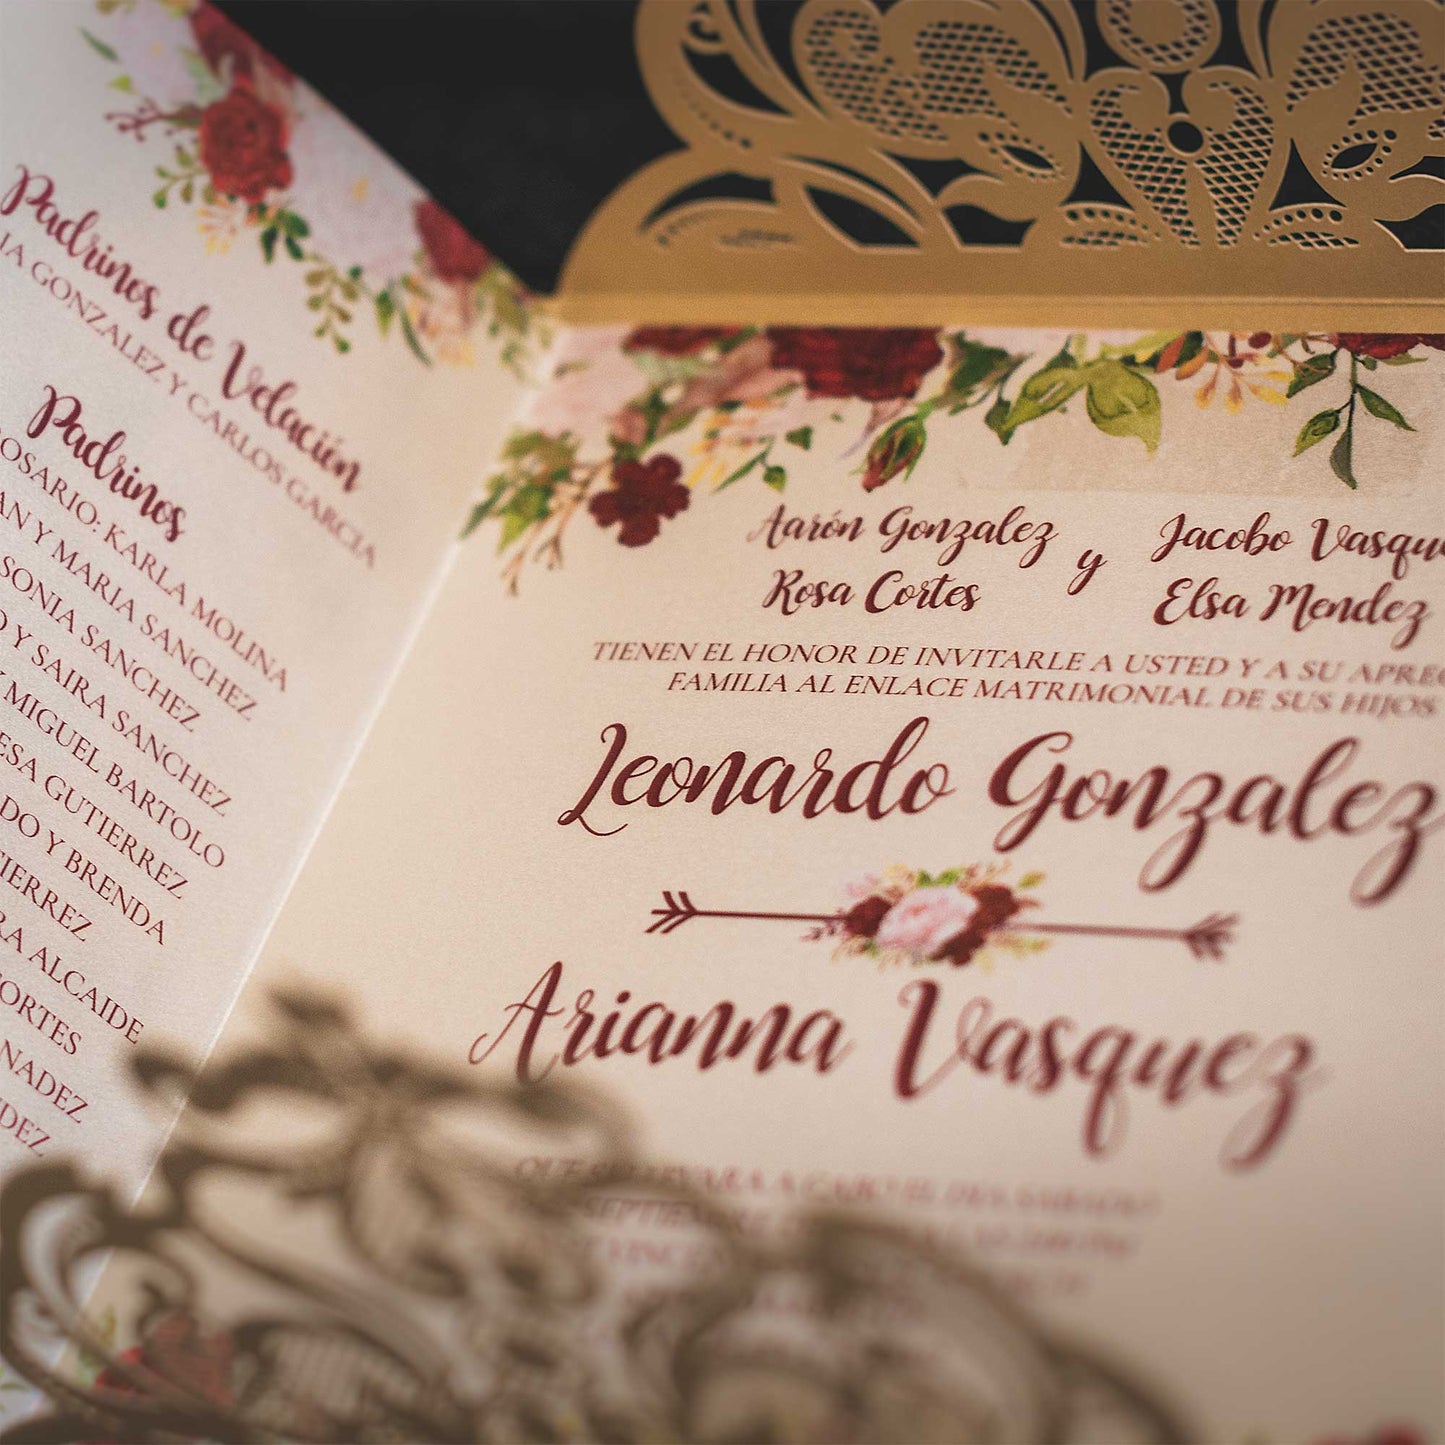 Padrinos de Velación
IA GONZALEZ Y CARLOS GARCIA
Padrinos
ROSARIO: KARLA MOLINA
AN Y MARIA SANCHEZ
SONIA SANCHEZ
O Y SAIRA SANCHEZ
Y MIGUEL BARTOLO
ESA GUTIERREZ
DO Y BRENDA
TIERREZ
RA ALCAIDE
CORTES
NADEZ
DEZ
Aarón Gonzalez y Jacobo Vasque
Rosa Cortes Elsa Mendez
TIENEN EL HONOR DE INVITARLE A USTED Y A SU APREC
FAMILIA AL ENLACE MATRIMONIAL DE SUS HIJOS
Leonardo Gonzalez
Arianna Vasquez
QUE SE LLEVARA A CABO EL DIA SABADO
SEPTIEMBRE